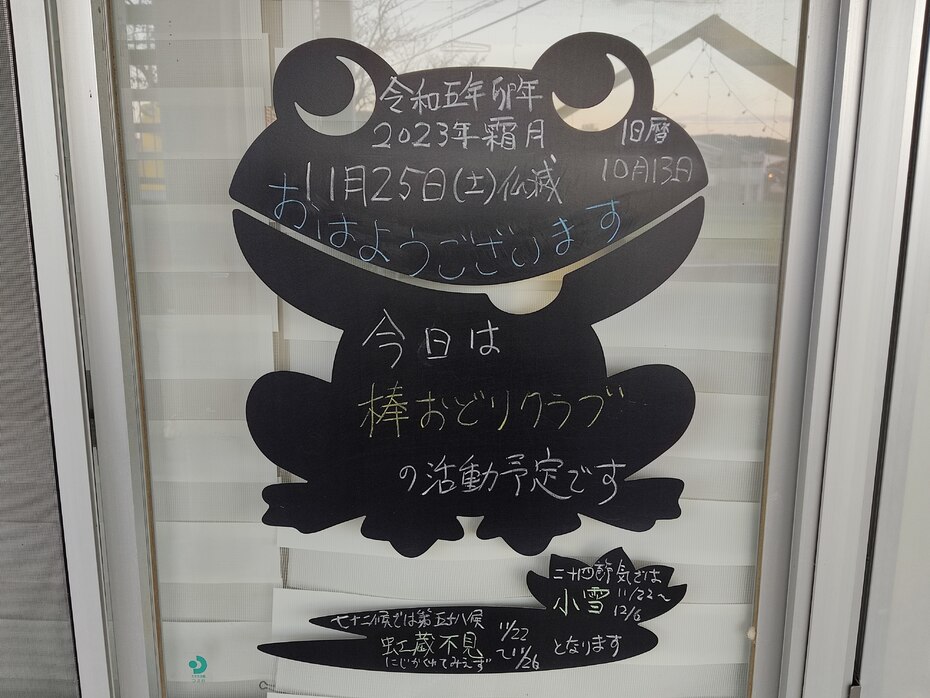 令和五年卯年
2023年霜月
旧暦
10月13日
11月25日(土)仏滅
おはようございます
今日は
棒おどりクラブ
の活動予定です
二十四節気では
小雪 11/22〜
12/6
七十二候では第五十八候
虹蔵不見 11/22
〜11/26
にじかくれてみえず
となります